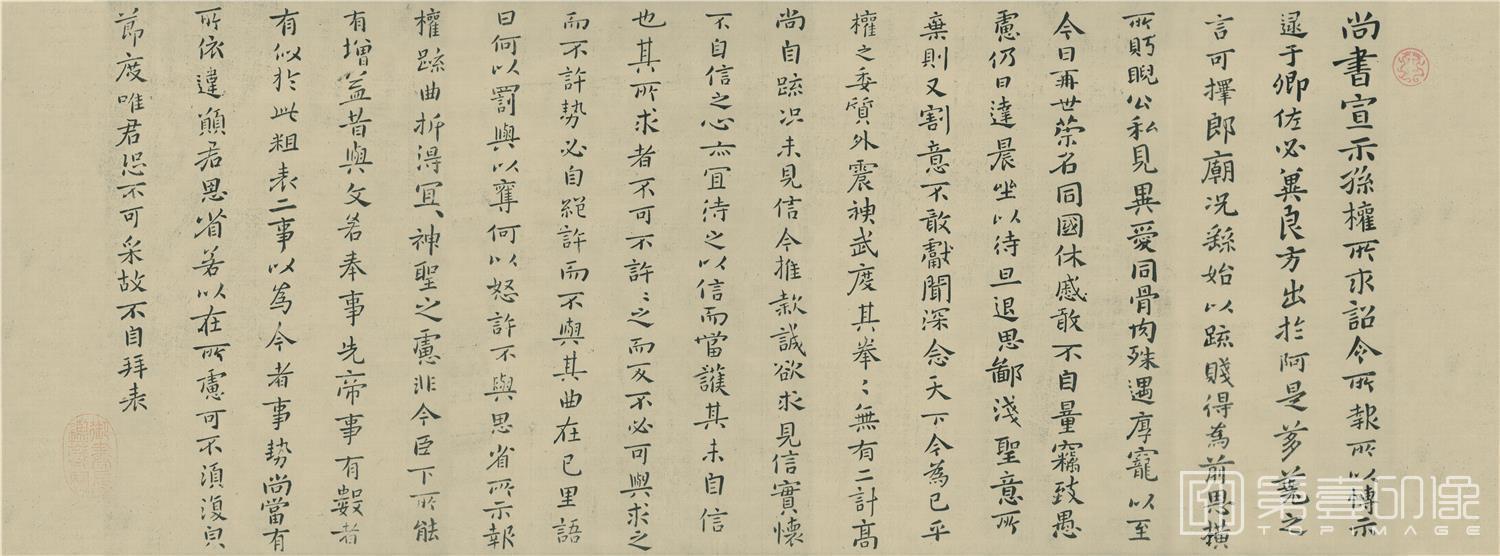 尚書宣示孫權所求詔令所報所以博示
逮于卿佐必冀良方出於阿是芻蕘之
言可擇郎廟况繇始以疏賤得為前恩橫
所眄睨公私見異愛同骨肉殊遇厚寵以至
今日再世榮名同國休慼敢不自量竊致愚
慮仍日達晨坐以待旦退思鄙淺聖意所
棄則又割意不敢獻聞深念天下今為已平
權之委質外震神武度其拳〻無有二計高
尚自疏况未見信今推款誠欲求見信實懷
不自信之心亦宜待之以信而當護其未自信
也其所求者不可不許〻之而反不必可與求之
而不許勢必自絕許而不與其曲在己里語
曰何以罰與以奪何以怒許不與思省所示報
權疏曲折得宜〻神聖之慮非今臣下所能
有增益昔與文若奉事先帝事有數者
有似於此粗表二事以為今者事勢尚當有
所依違願君思省若以在所慮可不須復皃
節度唯君恐不可采故不自拜表
TOPIMAGE